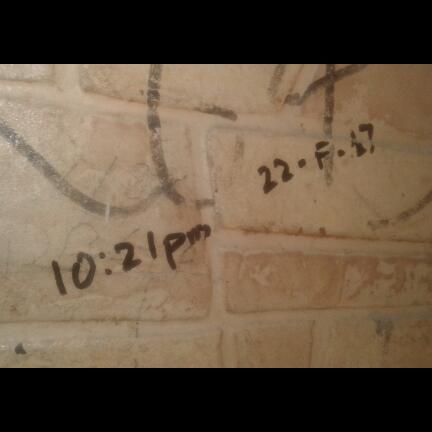 22.F.17
10:21pm